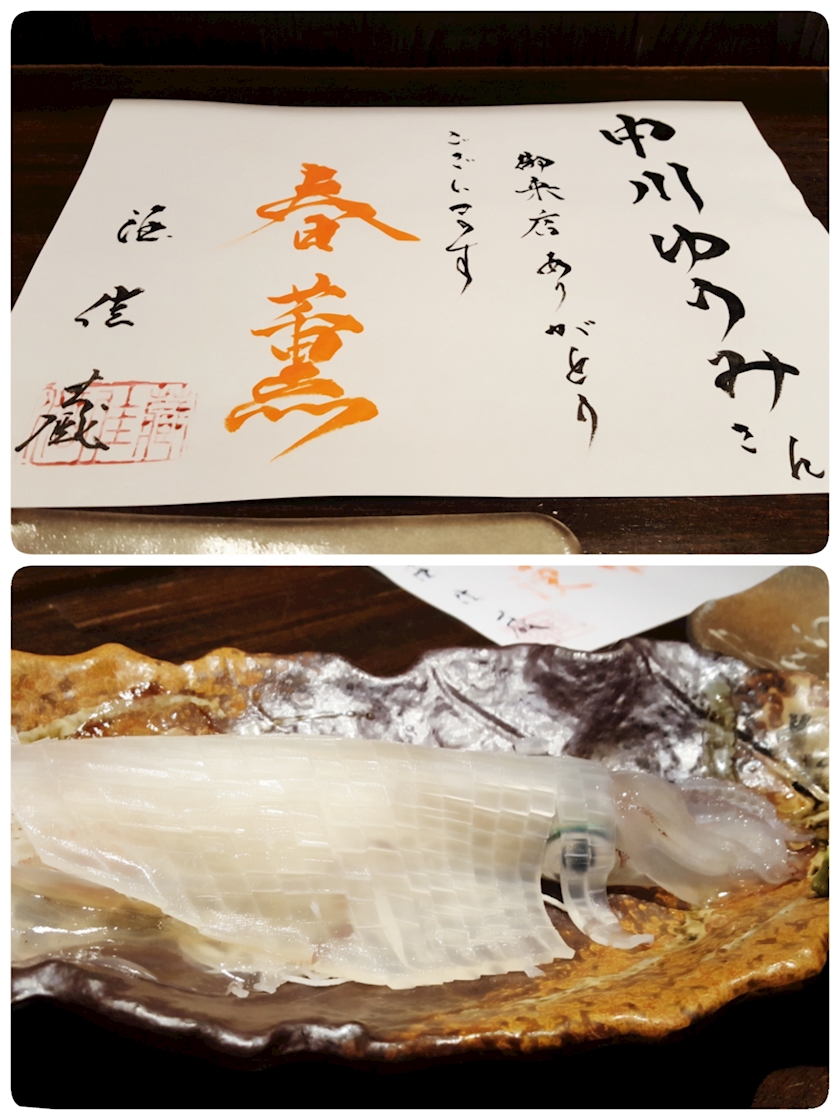 中川ゆりみさん
御来店ありがとう
ございます
春薫
佳蔵